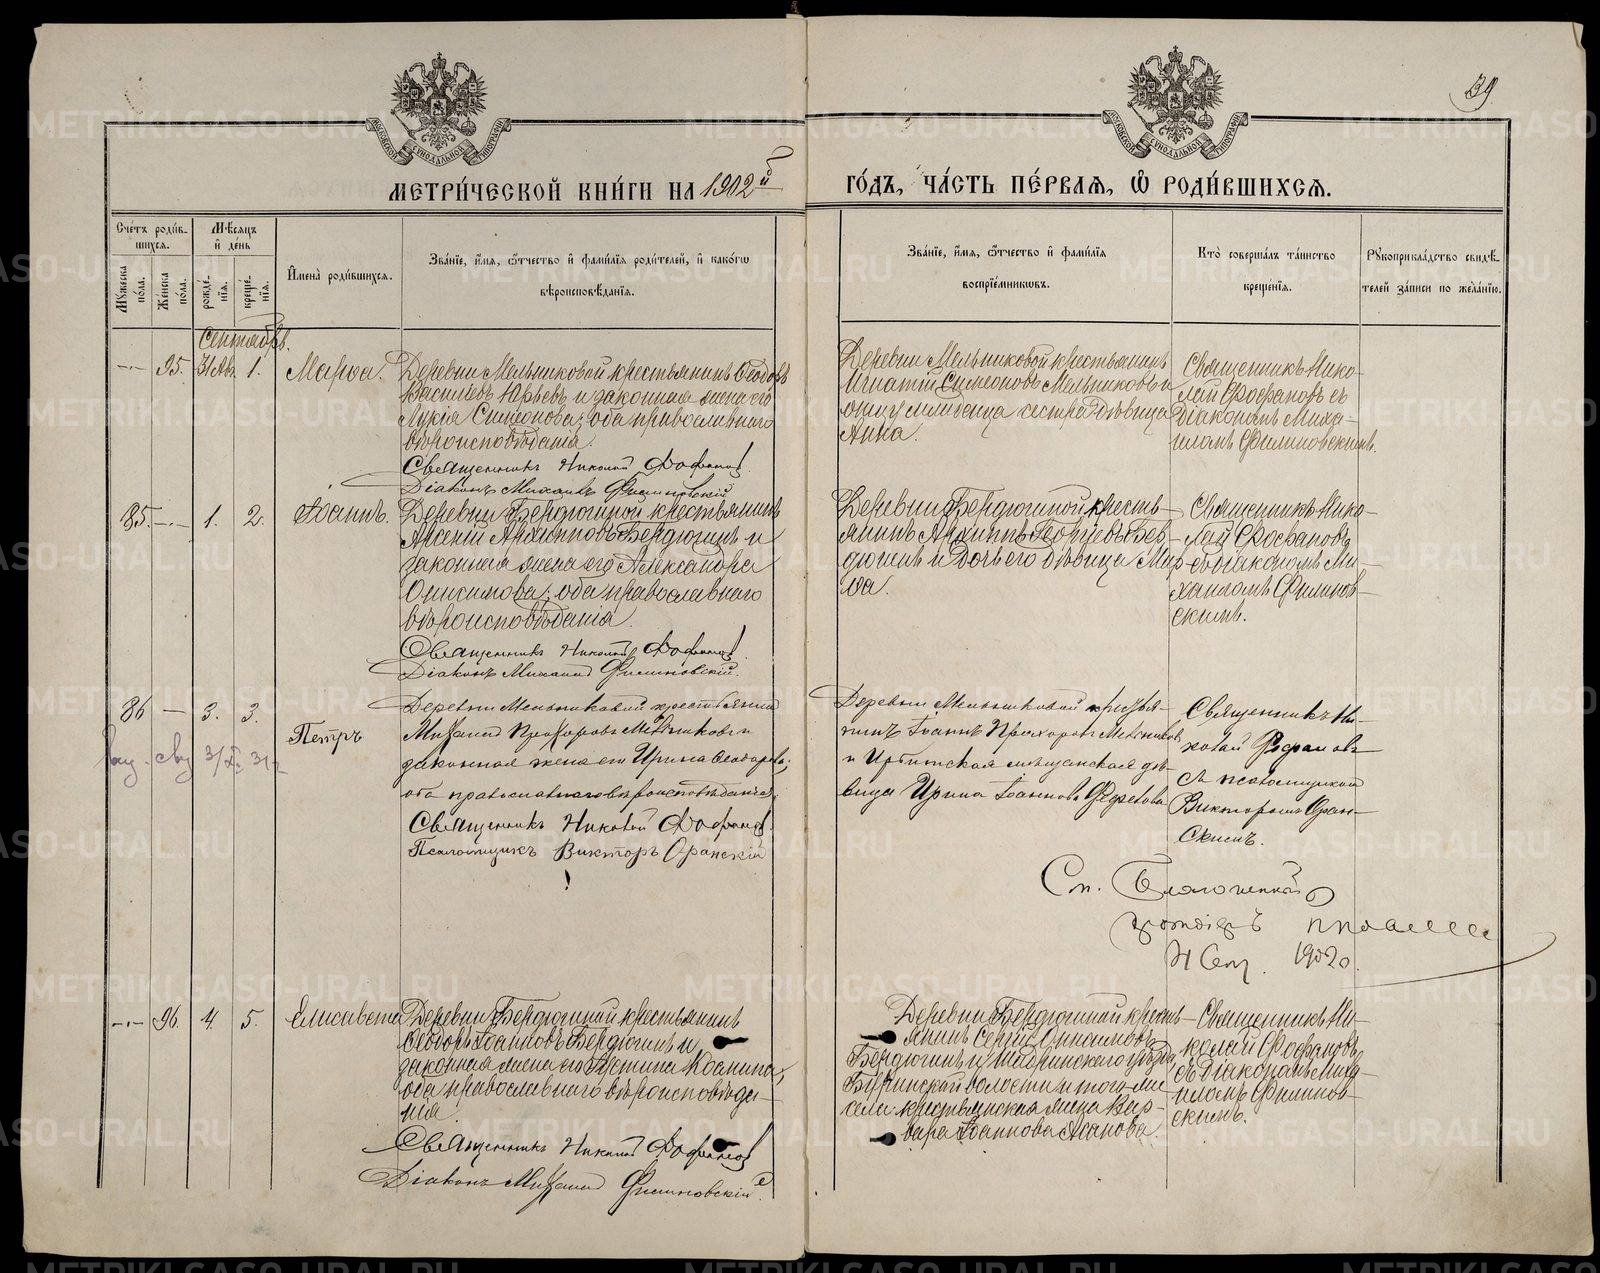 39
МЕТРИ́ЧЕСКОЙ КНИ́ГИ НА 1902й
ГО́ДЪ, ЧА́СТЬ ПЕ́РВАЯ, Ѡ҆ РОДИ́ВШИХСЯ.
МОСКОВСКОЙ СѴНОДАЛЬНОЙ ТИПОГРАФІИ
МОСКОВСКОЙ СѴНОДАЛЬНОЙ ТИПОГРАФІИ
Сче́тъ роди́в-
шихся.
Мѣ́сяцъ
и҆ де́нь
Му́жеска по́ла.
Же́нска по́ла.
рожде́-
нїя.
креще́-
нїя.
И҆мена̀ роди́вшихся.
Зва́нїе, и҆́мя, ѻ҆́тчество и҆ фами́лїя роди́телей, и҆ како́гѡ
вѣроисповѣ́данїя.
Зва́нїе, и҆́мя, ѻ҆́тчество и҆ фами́лїя
воспрїе́мникѡвъ.
Кто̀ соверша́лъ та́инство
креще́нїя.
Рꙋкоприкла́дство свидѣ́-
телей за́писи по жела́нїю.
Сентябрь.
95. 31 Ав. 1. Марѳа.
Деревни Мельниковой крестьянинъ Ѳеодоръ
Васильевъ Юрьевъ и законная жена его
Лукія Симеонова; оба православнаго
вѣроисповѣданія.
Священникъ Николай
Діаконъ Михаилъ Филиновскій
Деревни Мельниковой крестьянинъ
Игнатій Симеоновъ Мельниковъ и
отцу младенца сестра дѣвица
Анна.
Священникъ Нико-
лай съ
діакономъ Миха-
иломъ Филиновскимъ.
85. 1. 2. Іоаннъ.
Деревни Бердюгиной крестьянинъ
Арсеній Архиповъ Бердюгинъ и
законная жена его Александра
Онисимова; оба православнаго
вѣроисповѣданія.
Священникъ Николай
Діаконъ Михаилъ Филиновскій.
Деревни Бердюгиной кресть-
янинъ Архиппъ Георгіевъ Бер-
дюгинъ и дочь его дѣвица Мар-
ѳа.
Священникъ Нико-
лай
съ діакономъ Ми-
хаиломъ Филинов-
скимъ.
86 3. 3. Петръ
Деревни Мельниковой крестьянинъ
Михаилъ Прохоровъ Мельниковъ и
законная жена его Ирина Ѳеодорова;
оба православнаго вѣроисповѣданія.
Священникъ Николай
Псаломщикъ Викторъ Оранскій
Деревни Мельниковой крестья-
нинъ Іоаннъ Прохоровъ Мельниковъ
и Ирбитская мѣщанская дѣ-
вица Ирина Іоаннова
Священникъ Ни-
колай
съ псаломщикомъ
Викторомъ Оран-
скимъ.
См.
1902 г.
96. 4. 5. Елисавета
Деревни Бердюгиной крестьянинъ
Ѳеодоръ Іоанновъ Бердюгинъ и
законная жена его
оба православнаго вѣроисповѣда-
нія
Священникъ Николай
Діаконъ Михаилъ Филиновскій.
Деревни Бердюгиной кресть-
янинъ Сергій Онисимовъ
Бердюгинъ и Шадринскаго уѣзда,
волости и того-же
села крестьянская жена Вар-
вара Іоаннова
Священникъ Ни-
колай
съ діакономъ Миха-
иломъ Филинов-
скимъ.
METRIKI.GASO-URAL.RU